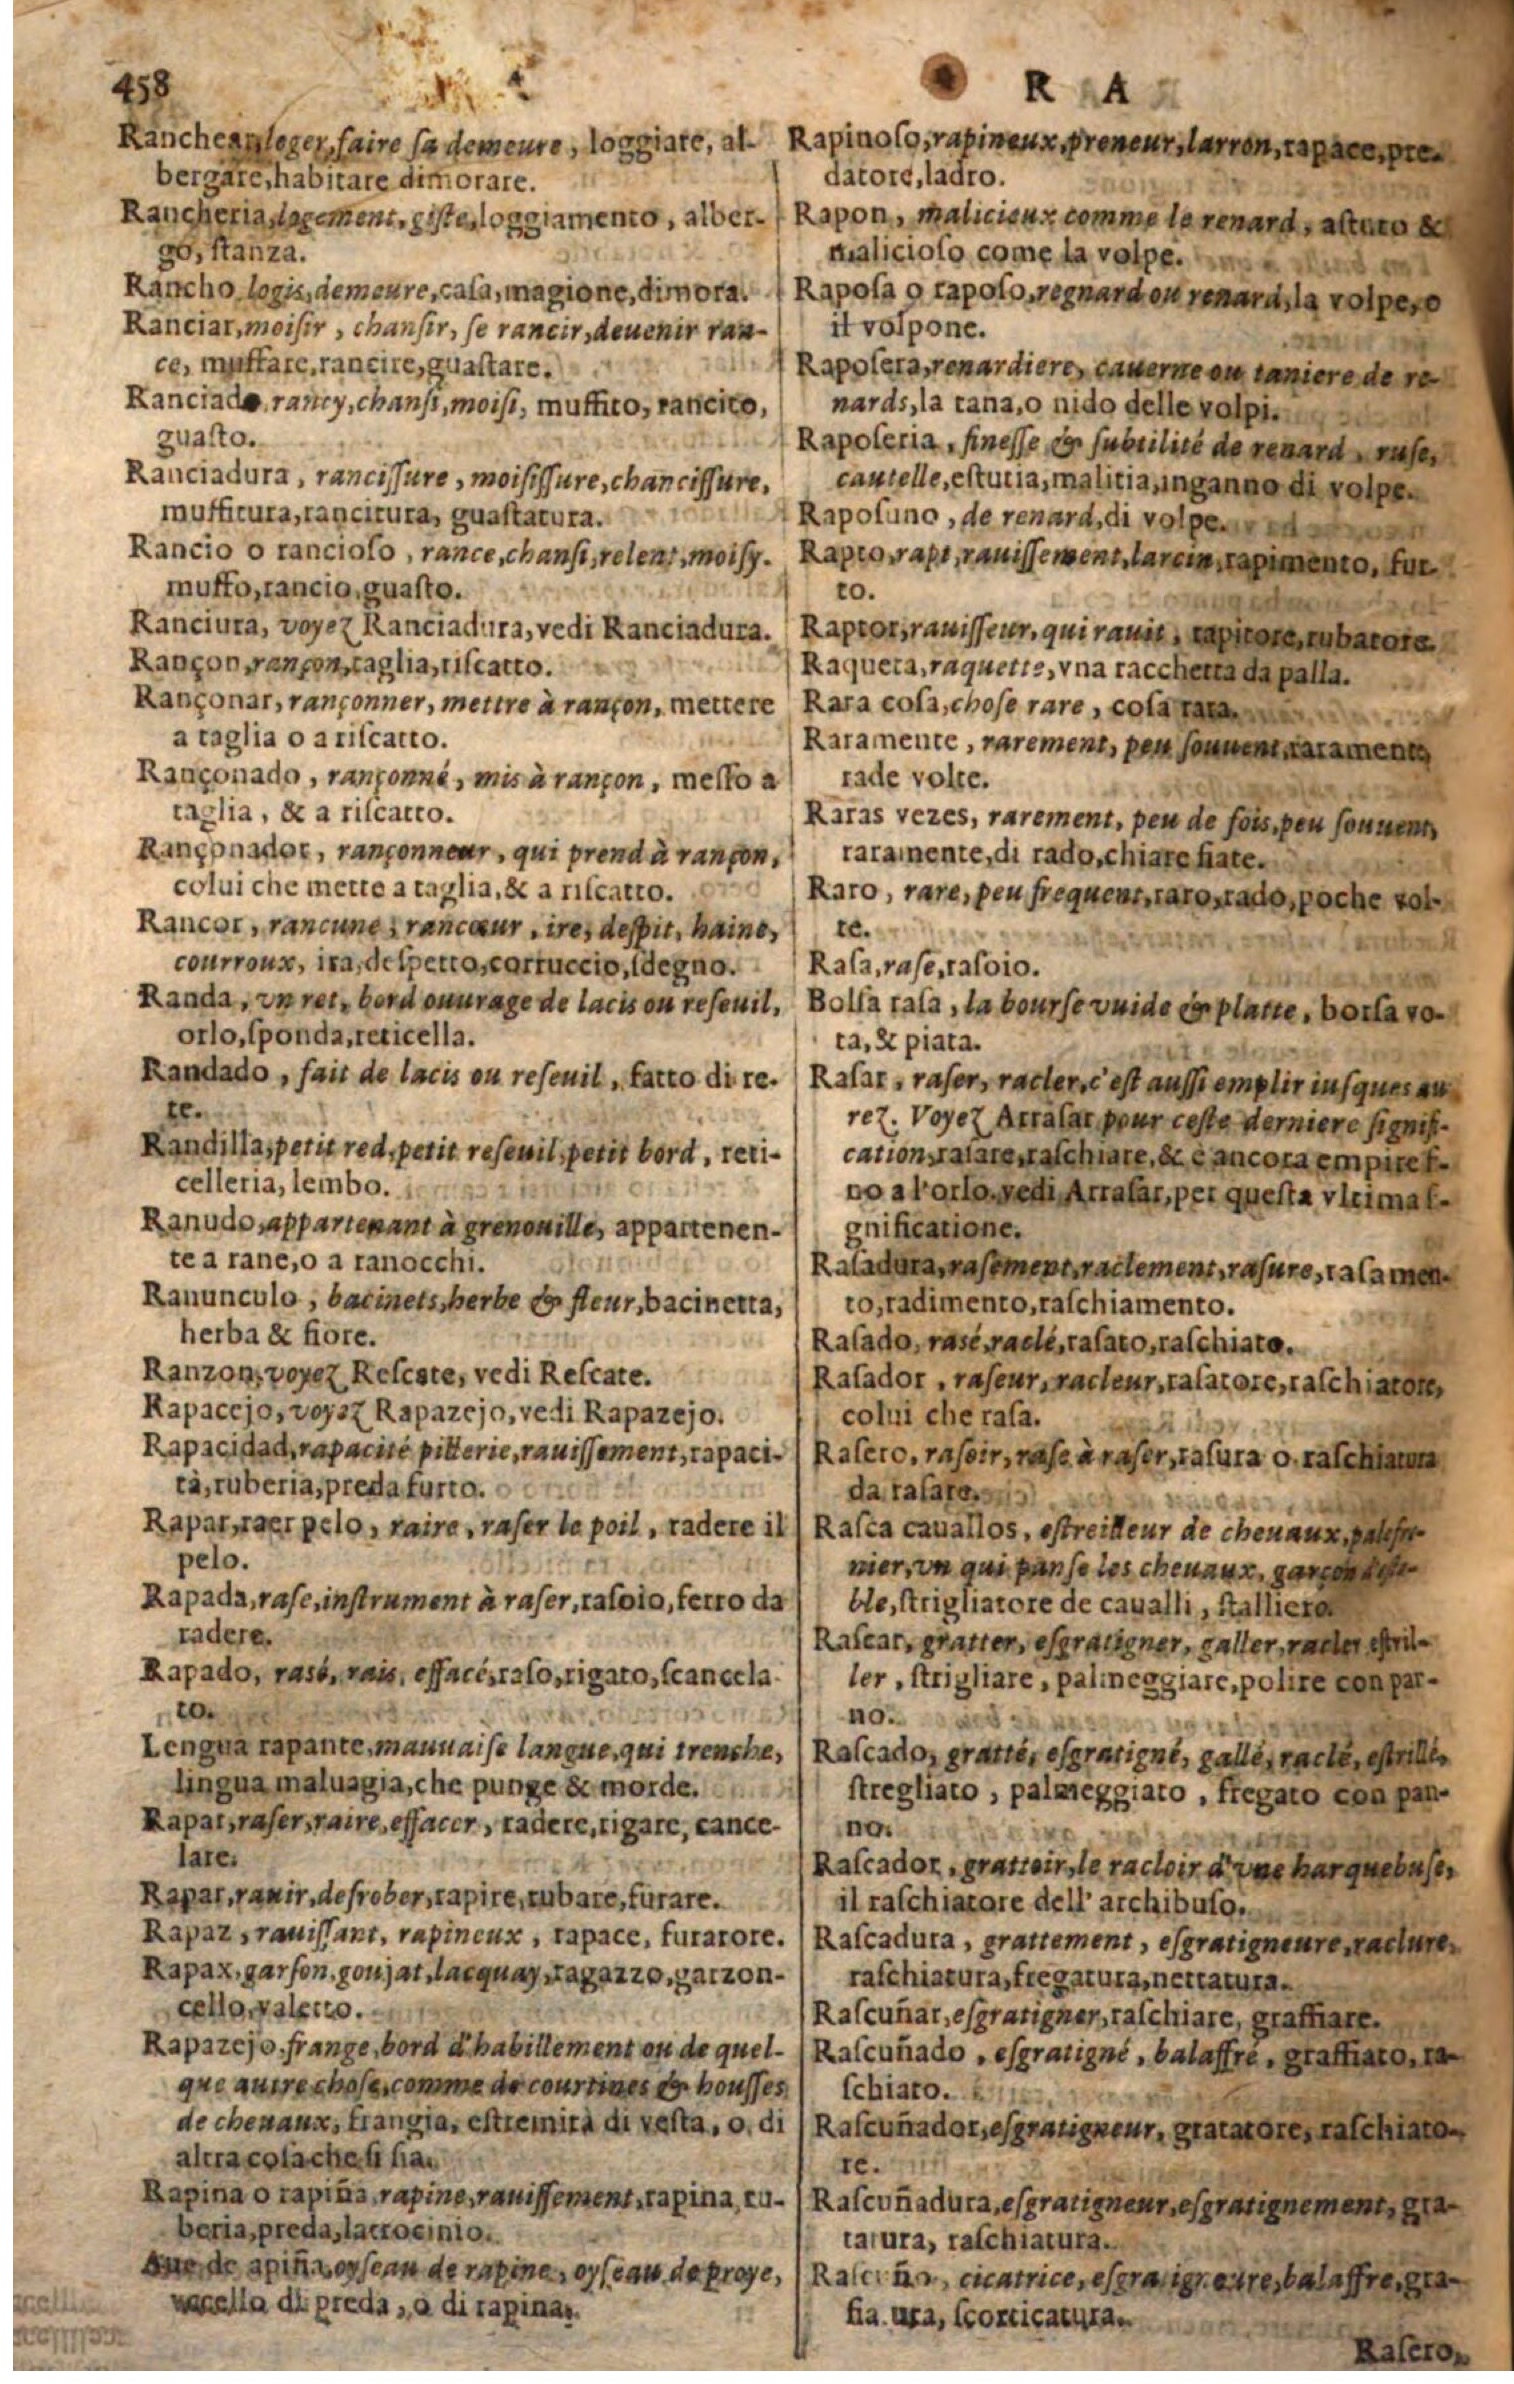 458
R A
Ranchear, loger, faire ſa demeure, loggiare, al-
bergare, habitare dimorare.
Rancheria, logement, giſte, loggiamento, alber-
go, ſtanza.
Rancho logis, demeure, caſa, magione, dimora.
Ranciar, moiſir, chanſir, ſe rancir, deuenir ran-
ce, muffare, rancire, guaſtare.
Ranciado, rancy, chanſi, moiſi, muffito, rancito,
guaſto.
Ranciadura, ranciſſure, moiſiſſure, chanciſſure,
muffitura, rancitura, guaſtatura.
Rancio o rancioſo, rance, chanſi, relent, moiſy.
muffo, rancio, guaſto.
Ranciura, voyez Ranciadura, vedi Ranciadura.
Rançon, rançon, taglia, riſcatto.
Rançonar, rançonner, mettre à rançon, mettere
a taglia o a riſcatto.
Rançonado, rançonné, mis à rançon, meſſo a
taglia, & a riſcatto.
Rançonador, rançonneur, qui prend à rançon,
colui che mette a taglia, & a riſcatto.
Rancor, rancune, rancœur, ire, deſpit, haine,
courroux, ira, deſpetto, corruccio, ſdegno.
Randa, vn ret, bord ouurage de lacis ou reſeuil,
orlo, ſponda, reticella.
Randado, fait de lacis ou reſeuil, fatto di re-
te.
Randilla, petit red, petit reſeuil, petit bord, reti-
celleria, lembo.
Ranudo, appartenant à grenouille, appartenen-
te a rane, o a ranocchi.
Ranunculo, bacinets, herbe & fleur, bacinetta,
herba & fiore.
Ranzon, voyez Reſcate, vedi Reſcate.
Rapacejo, voyez Rapazejo, vedi Rapazejo.
Rapacidad, rapacité pillerie, rauiſſement, rapaci-
tà, ruberia, preda furto.
Rapar, raer pelo, raire, raſer le poil, radere il
pelo.
Rapada, raſe, inſtrument à raſer, raſoio, ferro da
radere.
Rapado, rasé, rais, effacé, raſo, rigato, ſcancela
to.
Lengua rapante, mauuaiſe langue, qui trenche,
lingua maluagia, che punge & morde.
Rapar, raſer, raire, effacer, radere, rigare, cance-
lare.
Rapar, rauir, desrober, rapire, rubare, furare.
Rapaz, rauiſſant, rapineux, rapace, furatore.
Rapax, garſon, goujat, lacquay, ragazzo, garzon-
cello, valetto.
Rapazejo, frange, bord d'habillement ou de quel-
que autre choſe, comme de courtines & houſſes
de cheuaux, frangia, estremità di veſta, o di
altra coſa che ſi ſia.
Rapina o rapiña, rapine, rauiſſement, rapina, ru-
beria, preda, latrocinio.
Aue de apiña, oyſeau de rapine, oyſeau de proye,
vccello di preda, o di rapina.
Rapinoſo, rapineux, preneur, larron, rapace, pre-
datore, ladro.
Rapon, malicieux comme le renard, astuto &
malicioſo come la volpe.
Rapoſa o rapoſo, regnard ou renard, la volpe, o
il volpone.
Rapoſera, renardiere, cauerne ou taniere de re-
nards, la tana, o nido delle volpi.
Rapoſeria, fineſſe & ſubtilité de renard, ruſe,
cautelle, eſtutia, malitia, inganno di volpe.
Rapoſuno, de renard, di volpe.
Rapto, rapt, rauiſſement, larcin, rapimento, fur-
to.
Raptor, rauiſſeur, qui rauit, rapitore, rubatore.
Raqueta, raquette, vna racchetta da palla.
Rara coſa, choſe rare, coſa rara.
Raramente, rarement, peu ſouuent, raramente,
rade volte.
Raras vezes, rarement, peu de fois, peu ſouuent,
raramente, di rado, chiare fiate.
Raro, rare, peu frequent, raro, rado, poche vol-
te.
Raſa, raſe, raſoio.
Bolſa raſa, la bourſe vuide & platte, borſa vo-
ta, & piata.
Raſar, raſer, racler, c'eſt auſſi emplir iuſques au
rez. Voyez Arraſar pour ceſte derniere ſignifi-
cation, raſare, raſchiare, & è ancora empire ſ-
no a l'orlo. vedi Arraſar, per queſta vltima ſ-
gnificatione.
Raſadura, raſement, raclement, raſure, raſamen-
to, radimento, raſchiamento.
Raſado, rasé, raclé, raſato, raſchiato.
Raſador, raſeur, racleur, raſatore, raſchiatore,
colui che raſa.
Raſero, raſoir, raſe à raſer, raſura o raſchiatura
da raſare.
Raſca cauallos, eſtreilleur de cheuaux, palefre-
nier, vn qui panſe les cheuaux, garçon d'eſta-
ble, ſtrigliatore de caualli, ſtalliero.
Raſcar, gratter, eſgratigner, galler, racler eſtril-
ler, ſtrigliare, palmeggiare, polire con pan-
no.
Raſcado, gratté, eſgratigné, gallé, raclé, eſtrillé,
stregliato, palmeggiato, fregato con pan-
no.
Raſcador, grattoir, le racloir d'vne harquebuſe,
il raſchiatore dell' archibuſo.
Raſcadura, grattement, eſgratigneure, raclure,
raſchiatura, fregatura, nettatura.
Raſcuñar, eſgratigner, raſchiare, graffiare.
Raſcuñado, eſgratigné, balaffré, graffiato, ra-
ſchiato.
Raſcuñador, eſgratigneur, gratatore, raſchiato-
re.
Raſcuñadura, eſgratigneur, eſgratignement, gra-
tatura, raſchiatura.
Raſcuño, cicatrice, eſgratigneure, balaffre, gra-
fiatura, ſcorticatura.
Raſero,